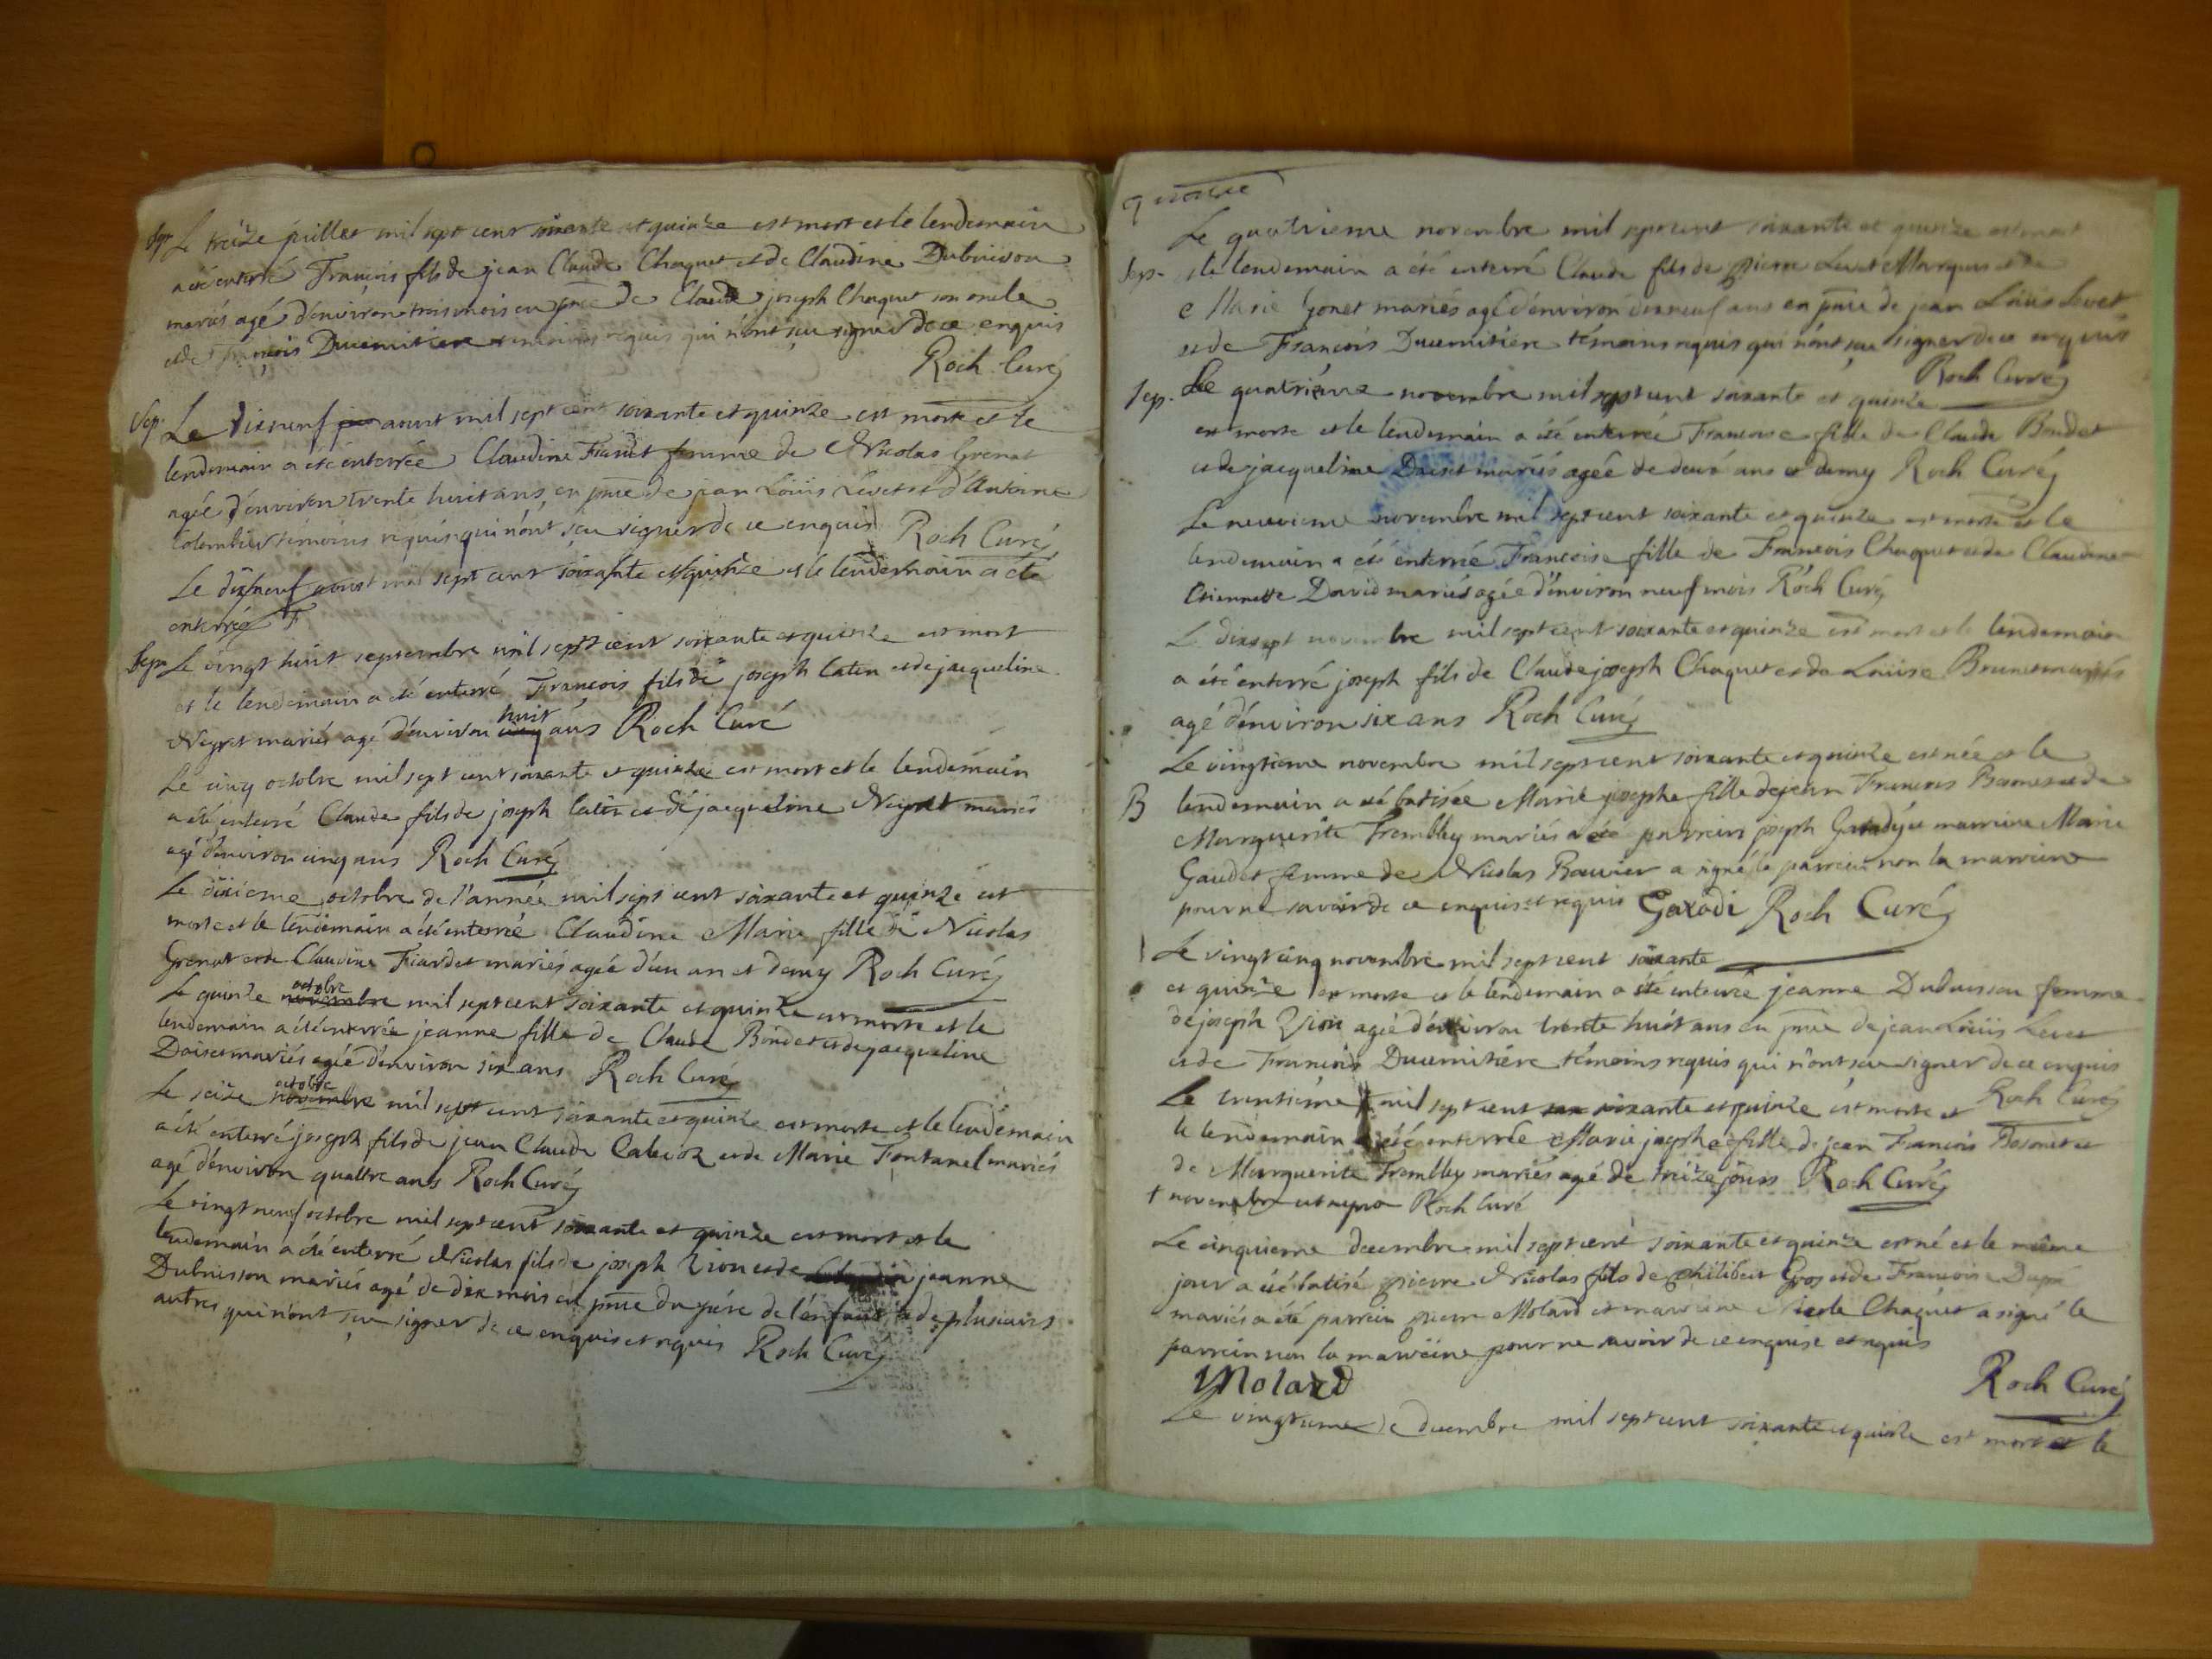 Sep. Le treize juillet mil sept cent soixante et quinze est mort et le lendemain
a été enterré François fils de jean Claude Chaquet et de Claudine Dubuisson
mariés agé d'environ trois mois en pnce de Claude joseph Chaquet son oncle
et de François Ducimitiere témoins requis qui n'ont sçu signer de ce enquis
Roch Curé
Sep. Le dixneuf aoust mil sept cent soixante et quinze est morte et le
lendemain a été enterrée Claudine Fiardet femme de Nicolas Grenat
agée d'environ trente huit ans en pnce de jean Loüis Levet et d'Antoine
Colombier témoins requis qui n'ont sçu signer de ce enquis Roch Curé
Le dixneuf aoust mil sept cent soixante et quinze et le lendemain a été
enterrée F
Sep. Le vingt huit septembre mil sept cent soixante et quinze est mort
et le lendemain a été enterré François fils de joseph Catin et de jacqueline
Neyret mariés agé d'environ huit cinq ans Roch Curé
Le cinq octobre mil sept cent soixante et quinze est mort et le lendemain
a été enterré Claude fils de joseph Catin et de jacqueline Neyret mariés
agé d'environ cinq ans Roch Curé
Le dixieme octobre de l'année mil sept cent soixante et quinze est
morte et le lendemain a été enterrée Claudine Marie fille de Nicolas
Grenat et de Claudine Fiardet mariés agée d'un an et demy Roch Curé
Le quinze octobre novembre mil sept cent soixante et quinze est morte et le
lendemain a été enterrée jeanne fille de Claude Bondet et de jacqueline
Doiset mariés agée d'environ six ans Roch Curé
Le seize octobre novembre mil sept cent soixante et quinze est morte et le lendemain
a été enterré joseph fils de jean Claude Cabuoz et de Marie Fontanel mariés
agé d'environ quattre ans Roch Curé
Le vingt neuf octobre mil sept cent soixante et quinze est mort et le
lendemain a été enterré Nicolas fils de joseph Vion et de jeanne
Dubuisson mariés agé de dix mois en pnce du pére de l'enfant et de plusieurs
autres qui n'ont sçu signer de ce enquis et requis Roch Curé
Le quatrieme novembre mil sept cent soixante et quinze est mort
Sep. et le lendemain a été enterré Claude fils de pierre Levet Marquis et de
Marie Gonet mariés agé d'environ dixneuf ans en pnce de jean Loüis Levet
et de François Ducimitiére témoins requis qui n'ont sçu signer de ce enquis
Roch Curé
Sep. Le quatriéme novembre mil sept cent soixante et quinze
est morte et le lendemain a été enterrée Francoise fille de Claude Bondet
et de jacqueline Doiset mariés agée de deux ans et demy Roch Curé
Le neuvieme novembre mil sept cent soixante et quinze est morte et le
lendemain a été enterrée Francoise fille de François Chaquet et de Claudine
Etiennette David mariés agée d'environ neuf mois Roch Curé
Le dixsept novembre mil sept cent soixante et quinze est mort et le lendemain
a été enterré joseph fils de Claude joseph Chaquet et de Loüise Brunet mariés
agé d'environ six ans Roch Curé
Le vingtieme novembre mil sept cent soixante et quinze est née et le
B lendemain a été batisée Marie josephe fille de jean François et de
Marguerite Trembley mariés a été parrein joseph et marreine Marie
Gaudet femme de Nicolas Bouvier a signé le parrein non la marreine
pour ne savoir de ce enquis et requis Garadi Roch Curé
Le vingt cinq novembre mil sept cent soixante
et quinze est morte et le lendemain a été enterrée jeanne Dubuisson femme
de joseph Vion agée d'environ trente huit ans en pnce de jean Loüis Levet
et de François Ducimitiére témoins requis qui n'ont sçu signer de ce enquis
Roch Curé
Le trentiéme † mil sept cent soixante et quinze est morte et
le lendemain a été enterrée Marie josephe fille de jean François et
de Marguerite Trembley mariés agé de treize jours Roch Curé
† novembre Roch Curé
Le cinquieme decembre mil sept cent soixante et quinze est né et le même
jour a été batisé pierre Nicolas fils de philibert Gros et de Francoise Dupré
mariés a été parrein pierre Molard et marreine Nicole Chaquet a signé le
parrein non la marreine pour ne savoir de ce enquise et requis
Molard Roch Curé
Le vingtieme decembre mil sept cent soixante et quinze est mort et le